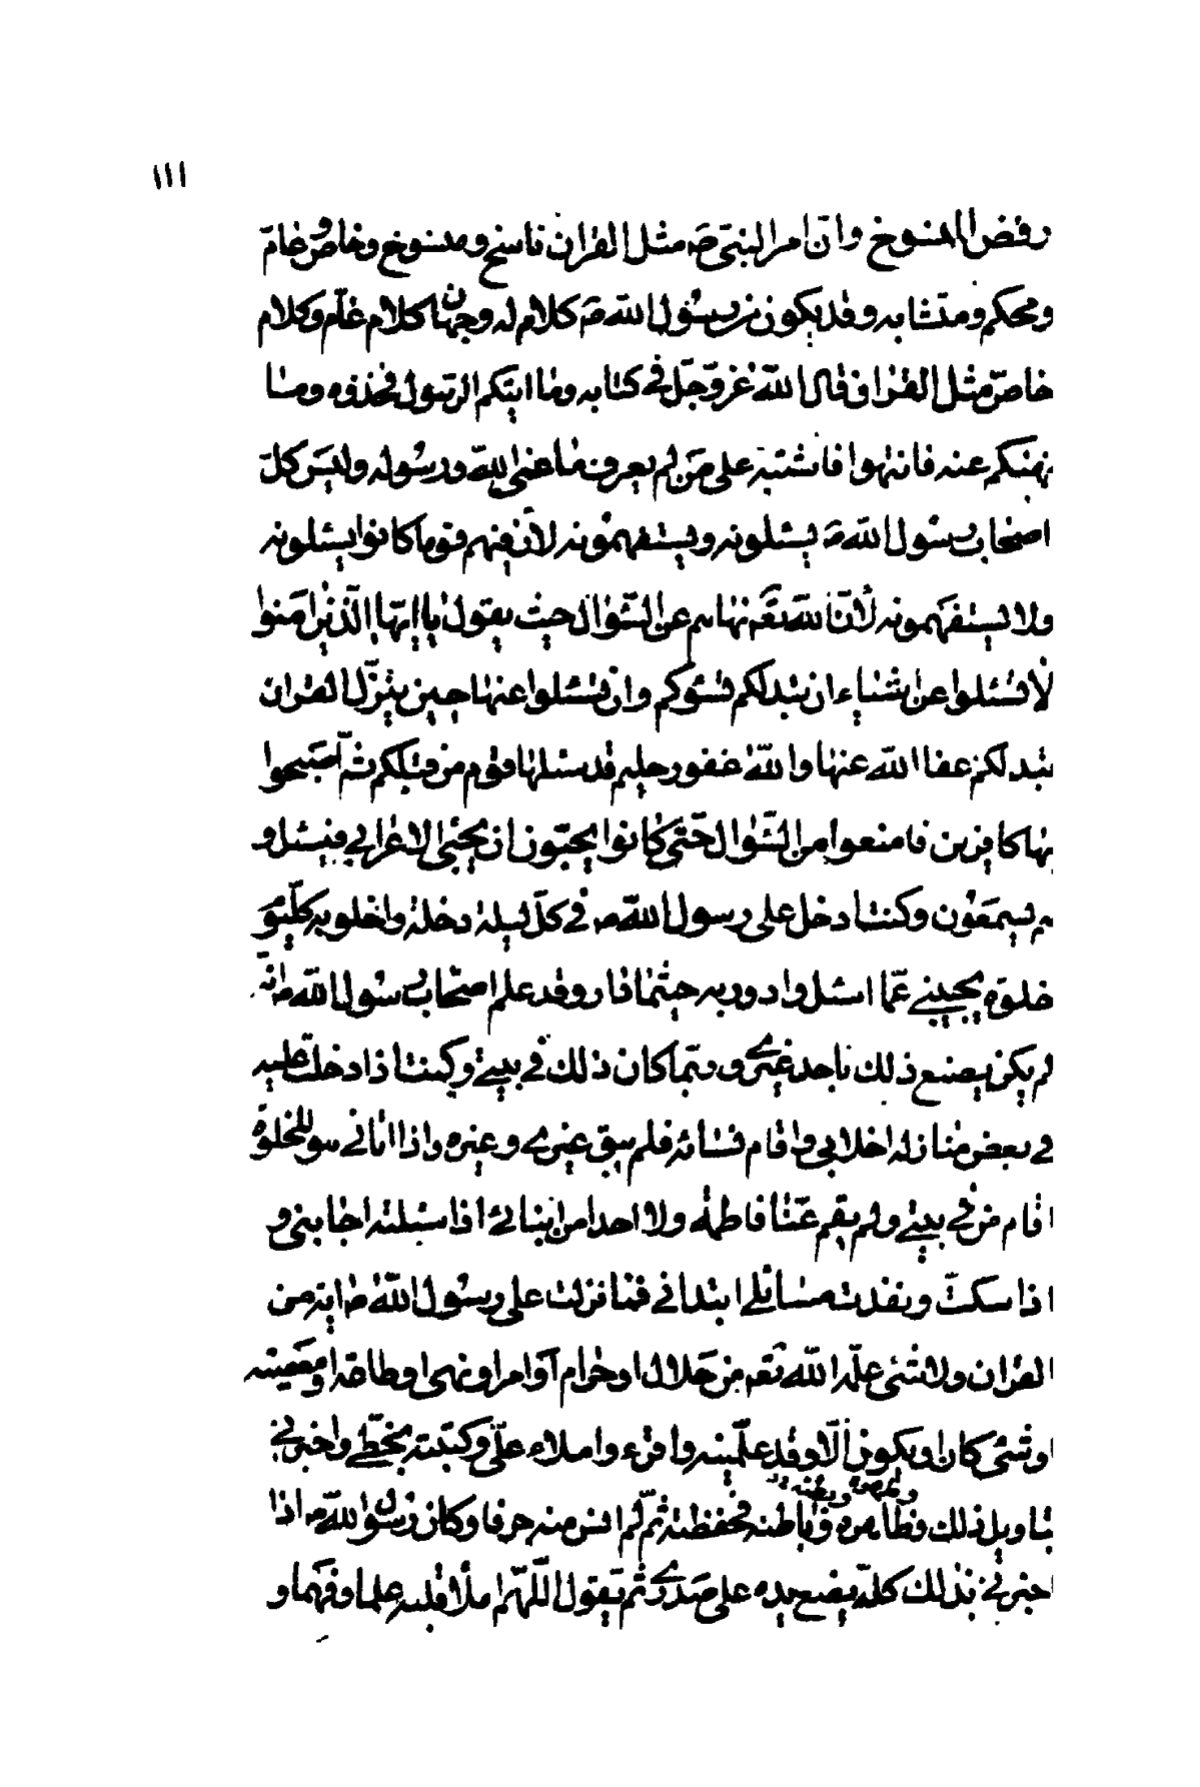 ١١١
رفض المنسوخ وان امر النبی ص مثل القران ناسخ ومنسوخ وخاص وعام
ومحکم ومتشابه وقد یکون من رسول الله ص کلام له وجهان کلام عام وکلام
خاص مثل القران قال الله عز وجل فی کتابه وما اتیکم الرسول فخذوه وما
نهیکم عنه فانتهوا فاشتبه علی من لم یعرف ما عنی الله ورسوله ولیس کل
اصحاب رسول الله ص یسئلونه ویستفهمونه لان فیهم قوما کانوا یسئلونه
ولا یستفهمونه لان الله تعم نهاهم عن السؤال حیث یقول یا ایها الذین امنوا
لا تسئلوا عن اشیاء ان تبد لکم تسؤکم وان تسئلوا عنها حین ینزل القران
تبد لکم عفا الله عنها والله غفور حلیم قد سئلها قوم من قبلکم ثم اصبحوا
بها کافرین فامنعوا من السؤال حتی کانوا یحبون ان یجیئ الاعرابی فیسئل و
هم یسمعون وکنت ادخل علی رسول الله ص فی کل لیلة دخلة واخلو به کل یوم
خلوة یجیبنی عما اسئل وادور به حیثما دار وقد علم اصحاب رسول الله ص انه
لم یکن یصنع ذلک باحد غیری وربما کان ذلک فی بیتی وکنت اذا دخلت علیه
فی بعض منازله اخلا بی واقام نسائه فلم یبق غیری وغیره واذا اتانی هو للخلوة
اقام من فی بیتی ولم یقم عنا فاطمة ولا احدا من ابنائی اذا سئلته اجابنی و
اذا سکت ونفدت مسائلی ابتدانی فما نزلت علی رسول الله ص ایة من
القران ولا شئ علمه الله تعم من حلال او حرام او امر او نهی او طاعة او معصیته
او شئ کان او یکون الا وقد علمنیه واقرء واملاه علی وکتبته بخطی واخبرنی
بتاویل ذلک وظاهره وباطنه فحفظته ثم لم انس منه حرفا وکان رسول الله ص اذا
اخبرنی بذلک کله یضع یده علی صدری ثم یقول اللهم املأ قلبه علما وفهما و